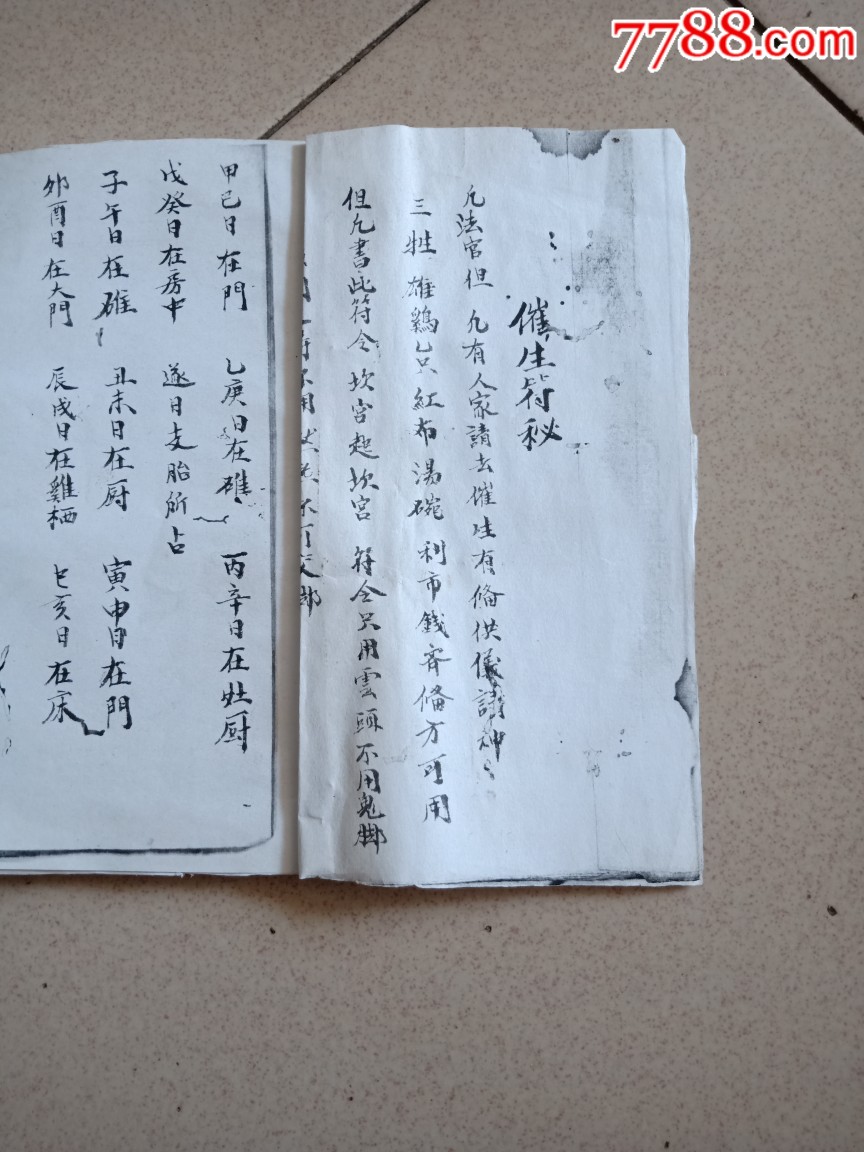 7788.com
催生符秘
凡法官但凡有人家請去催生有俻供儀請神
三牲雄鷄乙只紅布湯碗利市錢齊俻方可用
但凡書此符令坎宫起坎宫符令只用雲頭不用鬼脚
不用
甲己日在門 乙庚日在碓 丙辛日在灶厨
戊癸日在房中 逐日支胎所占
子午日在碓 丑未日在厨 寅申日在門
夘酉日在大門 辰戌日在雞栖 巳亥日在床